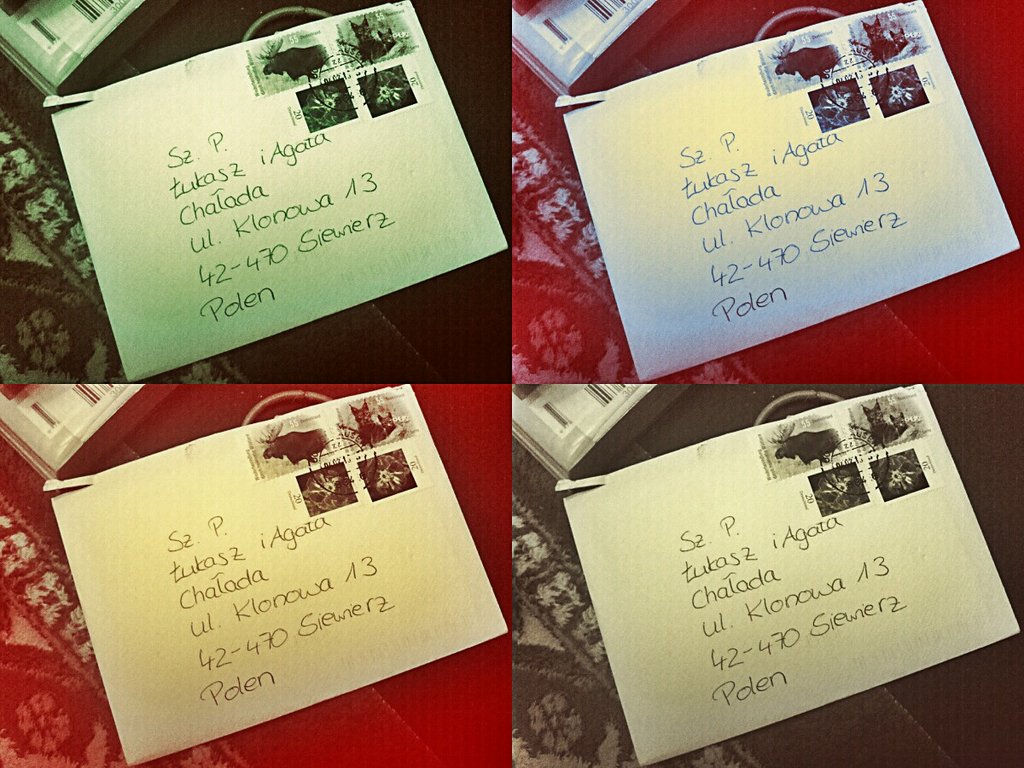 Sz. P.
Łukasz i Agata
Chałada
ul. Klonowa 13
42-470 Siewierz
Polen
55
20
20
Sz. P.
Łukasz i Agata
Chałada
ul. Klonowa 13
42-470 Siewierz
Polen
55
20
20
Sz. P.
Łukasz i Agata
Chałada
ul. Klonowa 13
42-470 Siewierz
Polen
55
20
20
Sz. P.
Łukasz i Agata
Chałada
ul. Klonowa 13
42-470 Siewierz
Polen
55
20
20